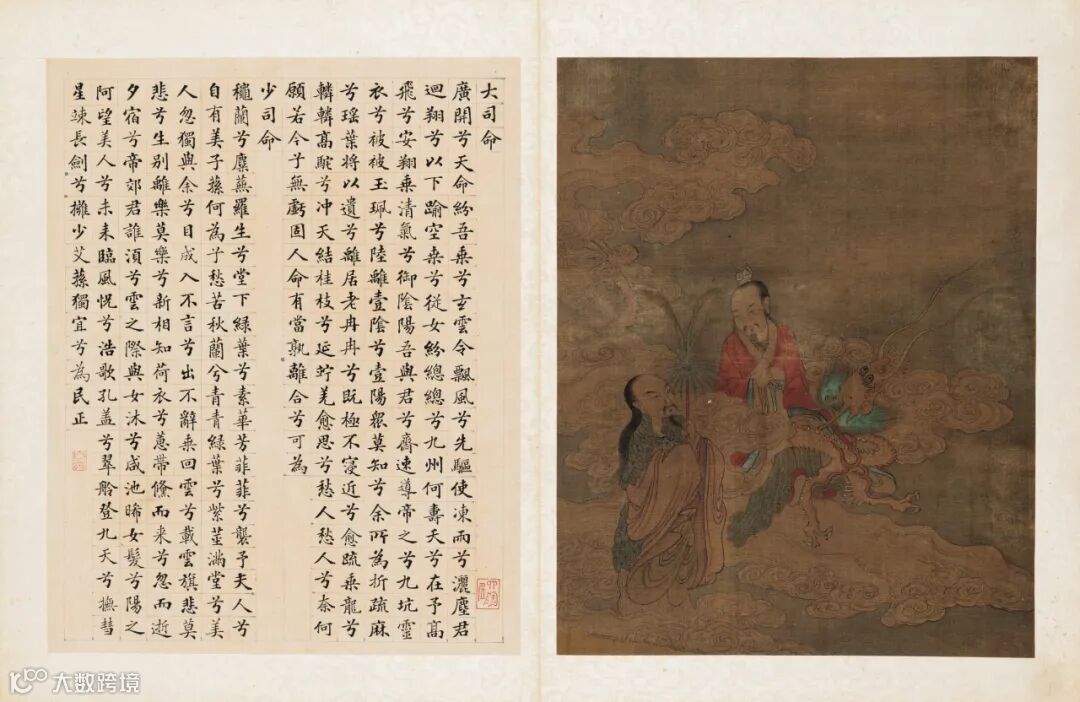 大司命
廣開兮天命紛吾乗兮玄雲令飄風兮先驅使凍雨兮灑塵君
迴翔兮以下踰空桑兮從女紛總總兮九州何壽夭兮在予高
飛兮安翔乗清氣兮御陰陽吾與君兮齋速導帝之兮九坑靈
衣兮被被玉珮兮陸離壹陰兮壹陽衆莫知兮余所為折疏麻
兮瑶葉将以遺兮離居老冉冉兮既極不寖近兮愈疏乗龍兮
轔轔高駝兮冲天結桂枝兮延竚羌愈思兮愁人愁人兮奈何
願若今兮無虧固人命有當孰離合兮可為
少司命
穐蘭兮麋蕪羅生兮堂下綠葉兮素華芳菲菲兮襲予夫人兮
自有美子蓀何為兮愁苦秋蘭兮青青綠葉兮紫莖滿堂兮美
人忽獨與余兮目成入不言兮出不辭乗回雲兮載雲旗悲莫
悲兮生別離樂莫樂兮新相知荷衣兮蕙帶儵而来兮忽而逝
夕宿兮帝郊君誰須兮雲之際與女沐兮咸池晞女髮兮陽之
阿望美人兮未来臨風怳兮浩歌孔盖兮翠旍登九天兮撫彗
星竦長劍兮擁少艾蓀獨宜兮為民正
大数跨境